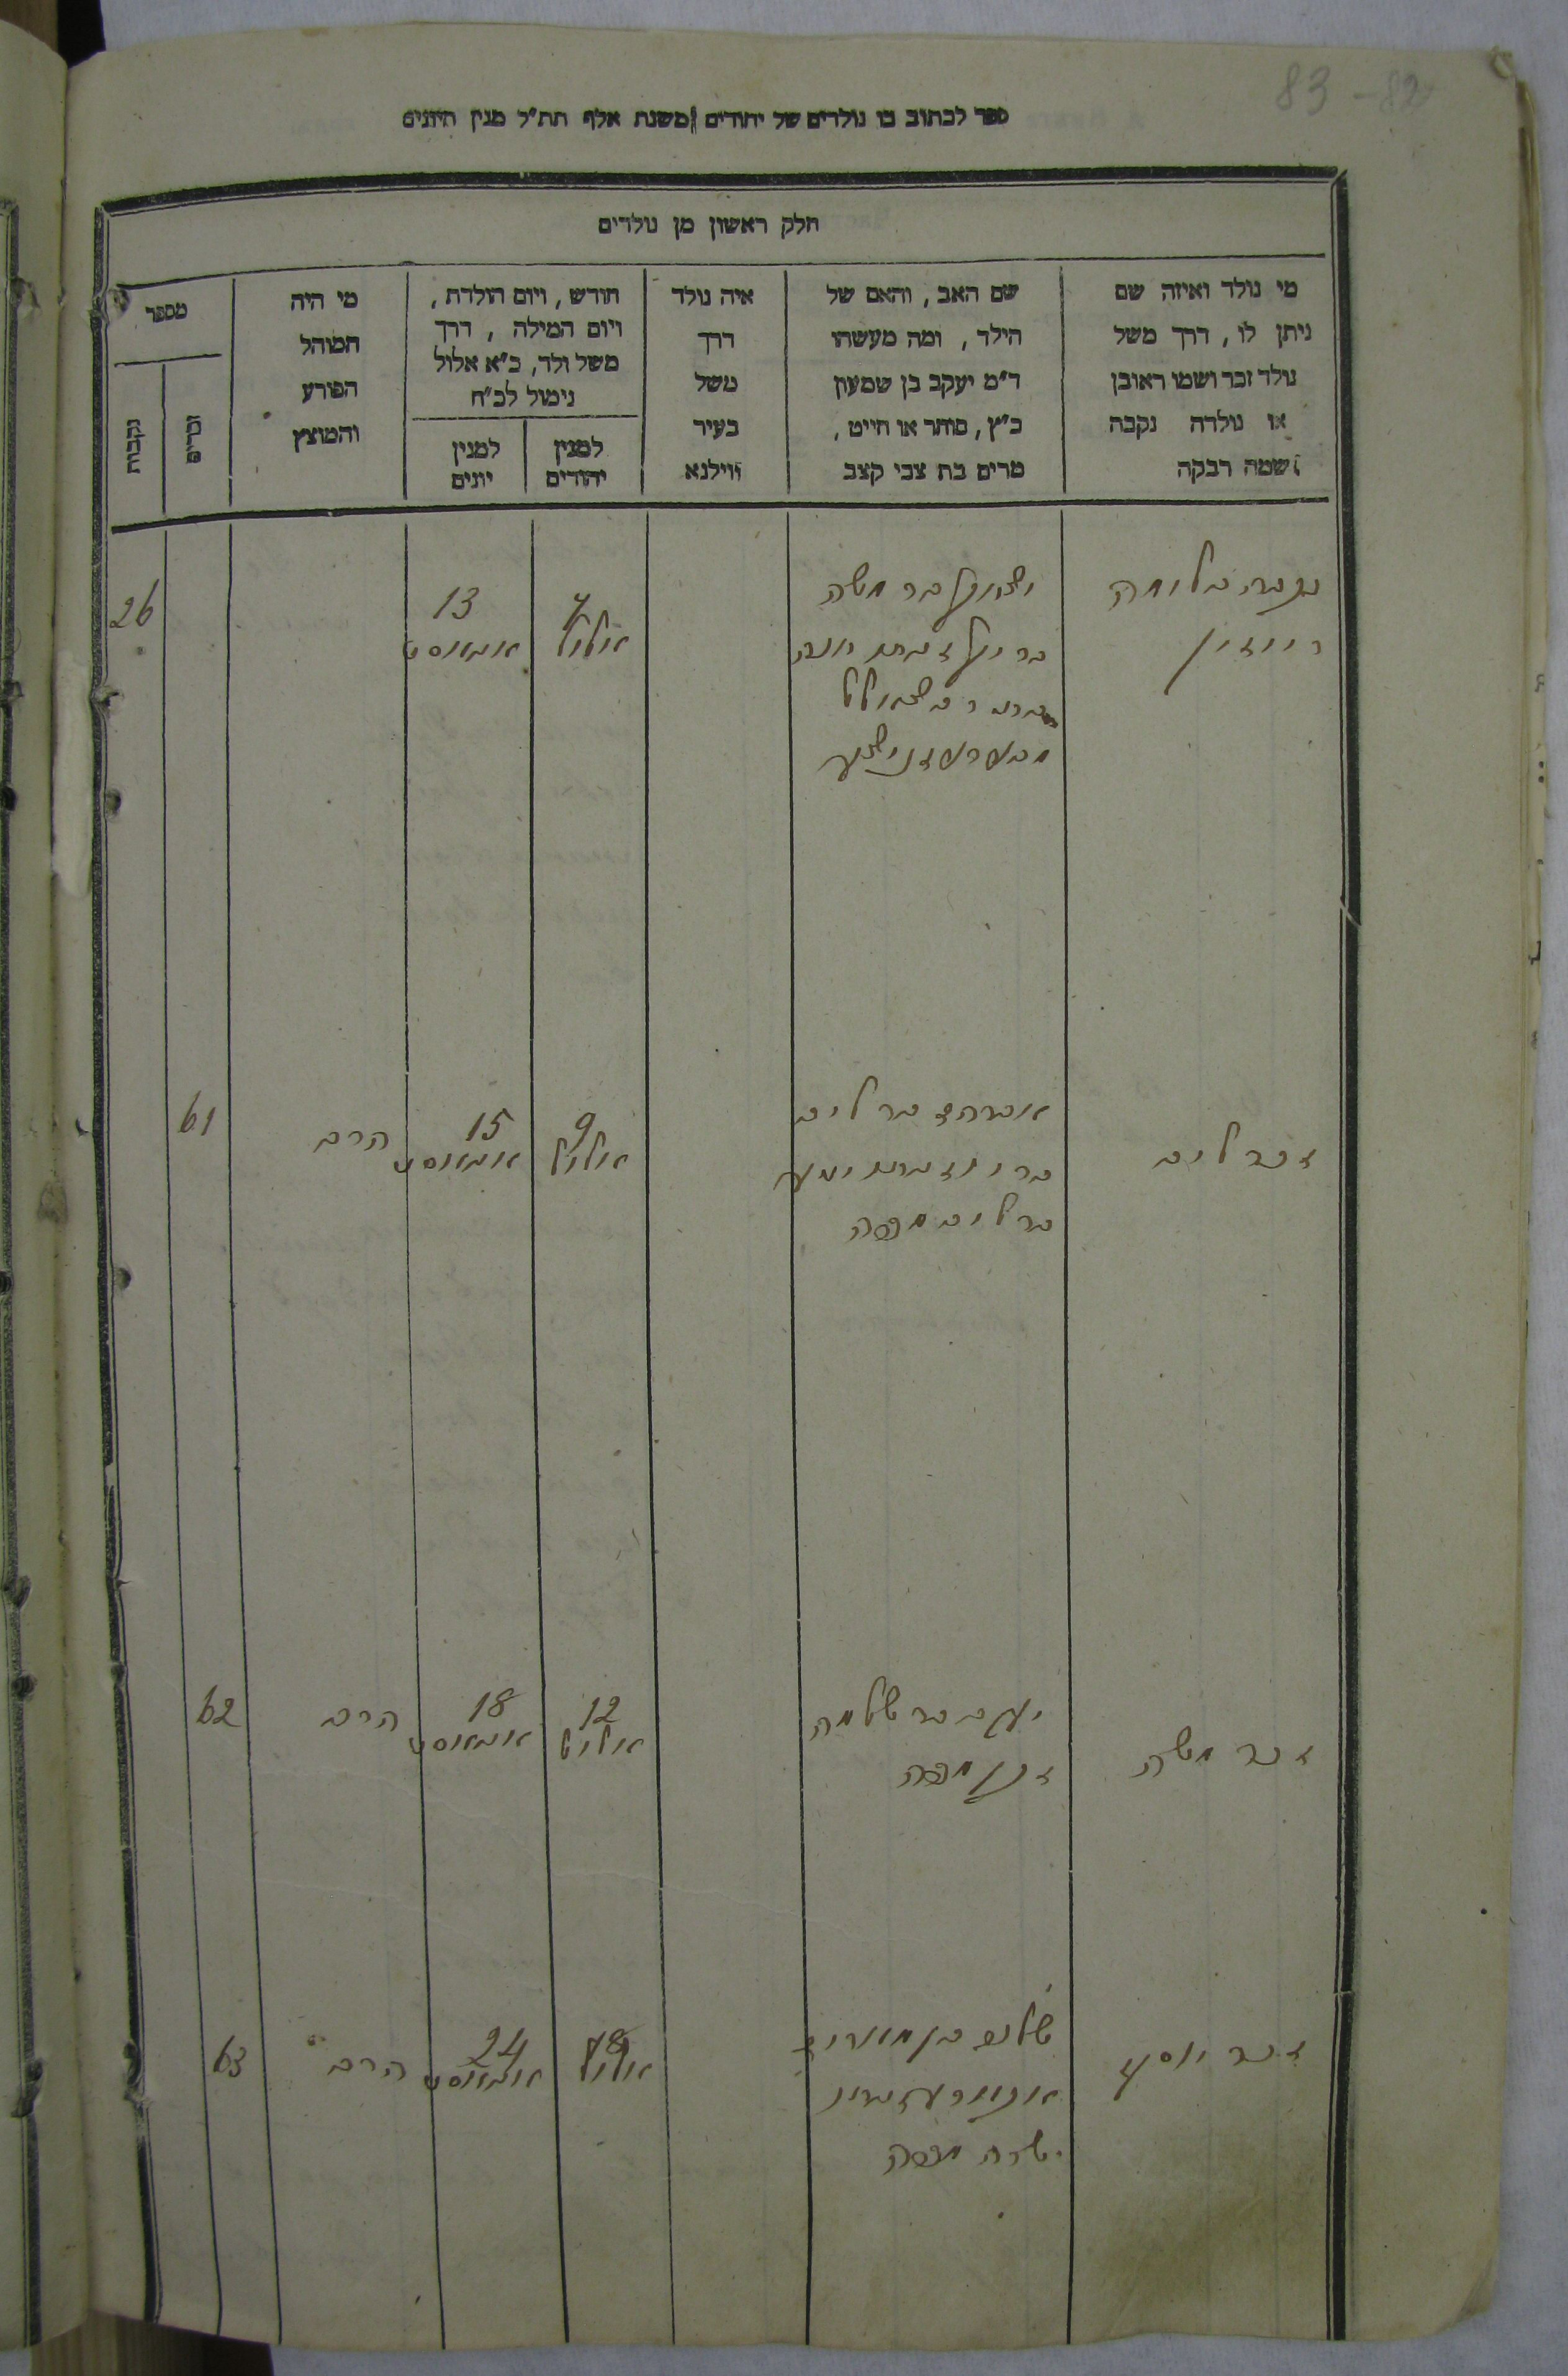 83-82
ספר לכתוב בו נולדים של יהודים משנת אלף תת״ל מנין היונים
חלק ראשון מן נולדים
מי נולד ואיזה שם
ניתן לו, דרך משל
נולד זכר ושמו ראובן
או נולדה נקבה
ושמה רבקה
שם האב, והאם של
הילד, ומה מעשהו
ד״מ יעקב בן שמעון
כ״ץ, סוחר או חייט,
מרים בת צבי קצב
איה נולד
דרך
משל
בעיר
ווילנא
חודש, ויום הולדת,
ויום המילה, דרך
משל ולד, כ״א אלול
נימול לכ״ח
למנין
יהודים
למנין
יונים
מי היה
המוהל
הפורע
והמוצץ
מספר
זכרים
נקבות
נקבה
בר משה
7
אלול
13
אויגוסט
26
זכר ליב
אברהם בר ליב
בר ליב
9
אלול
15
אויגוסט
הרב
61
זכר משה
יעקב בר שלמה
12
אלול
18
אויגוסט
הרב
62
זכר יוסף
שלום בן
18
אלול
24
אויגוסט
הרב
63